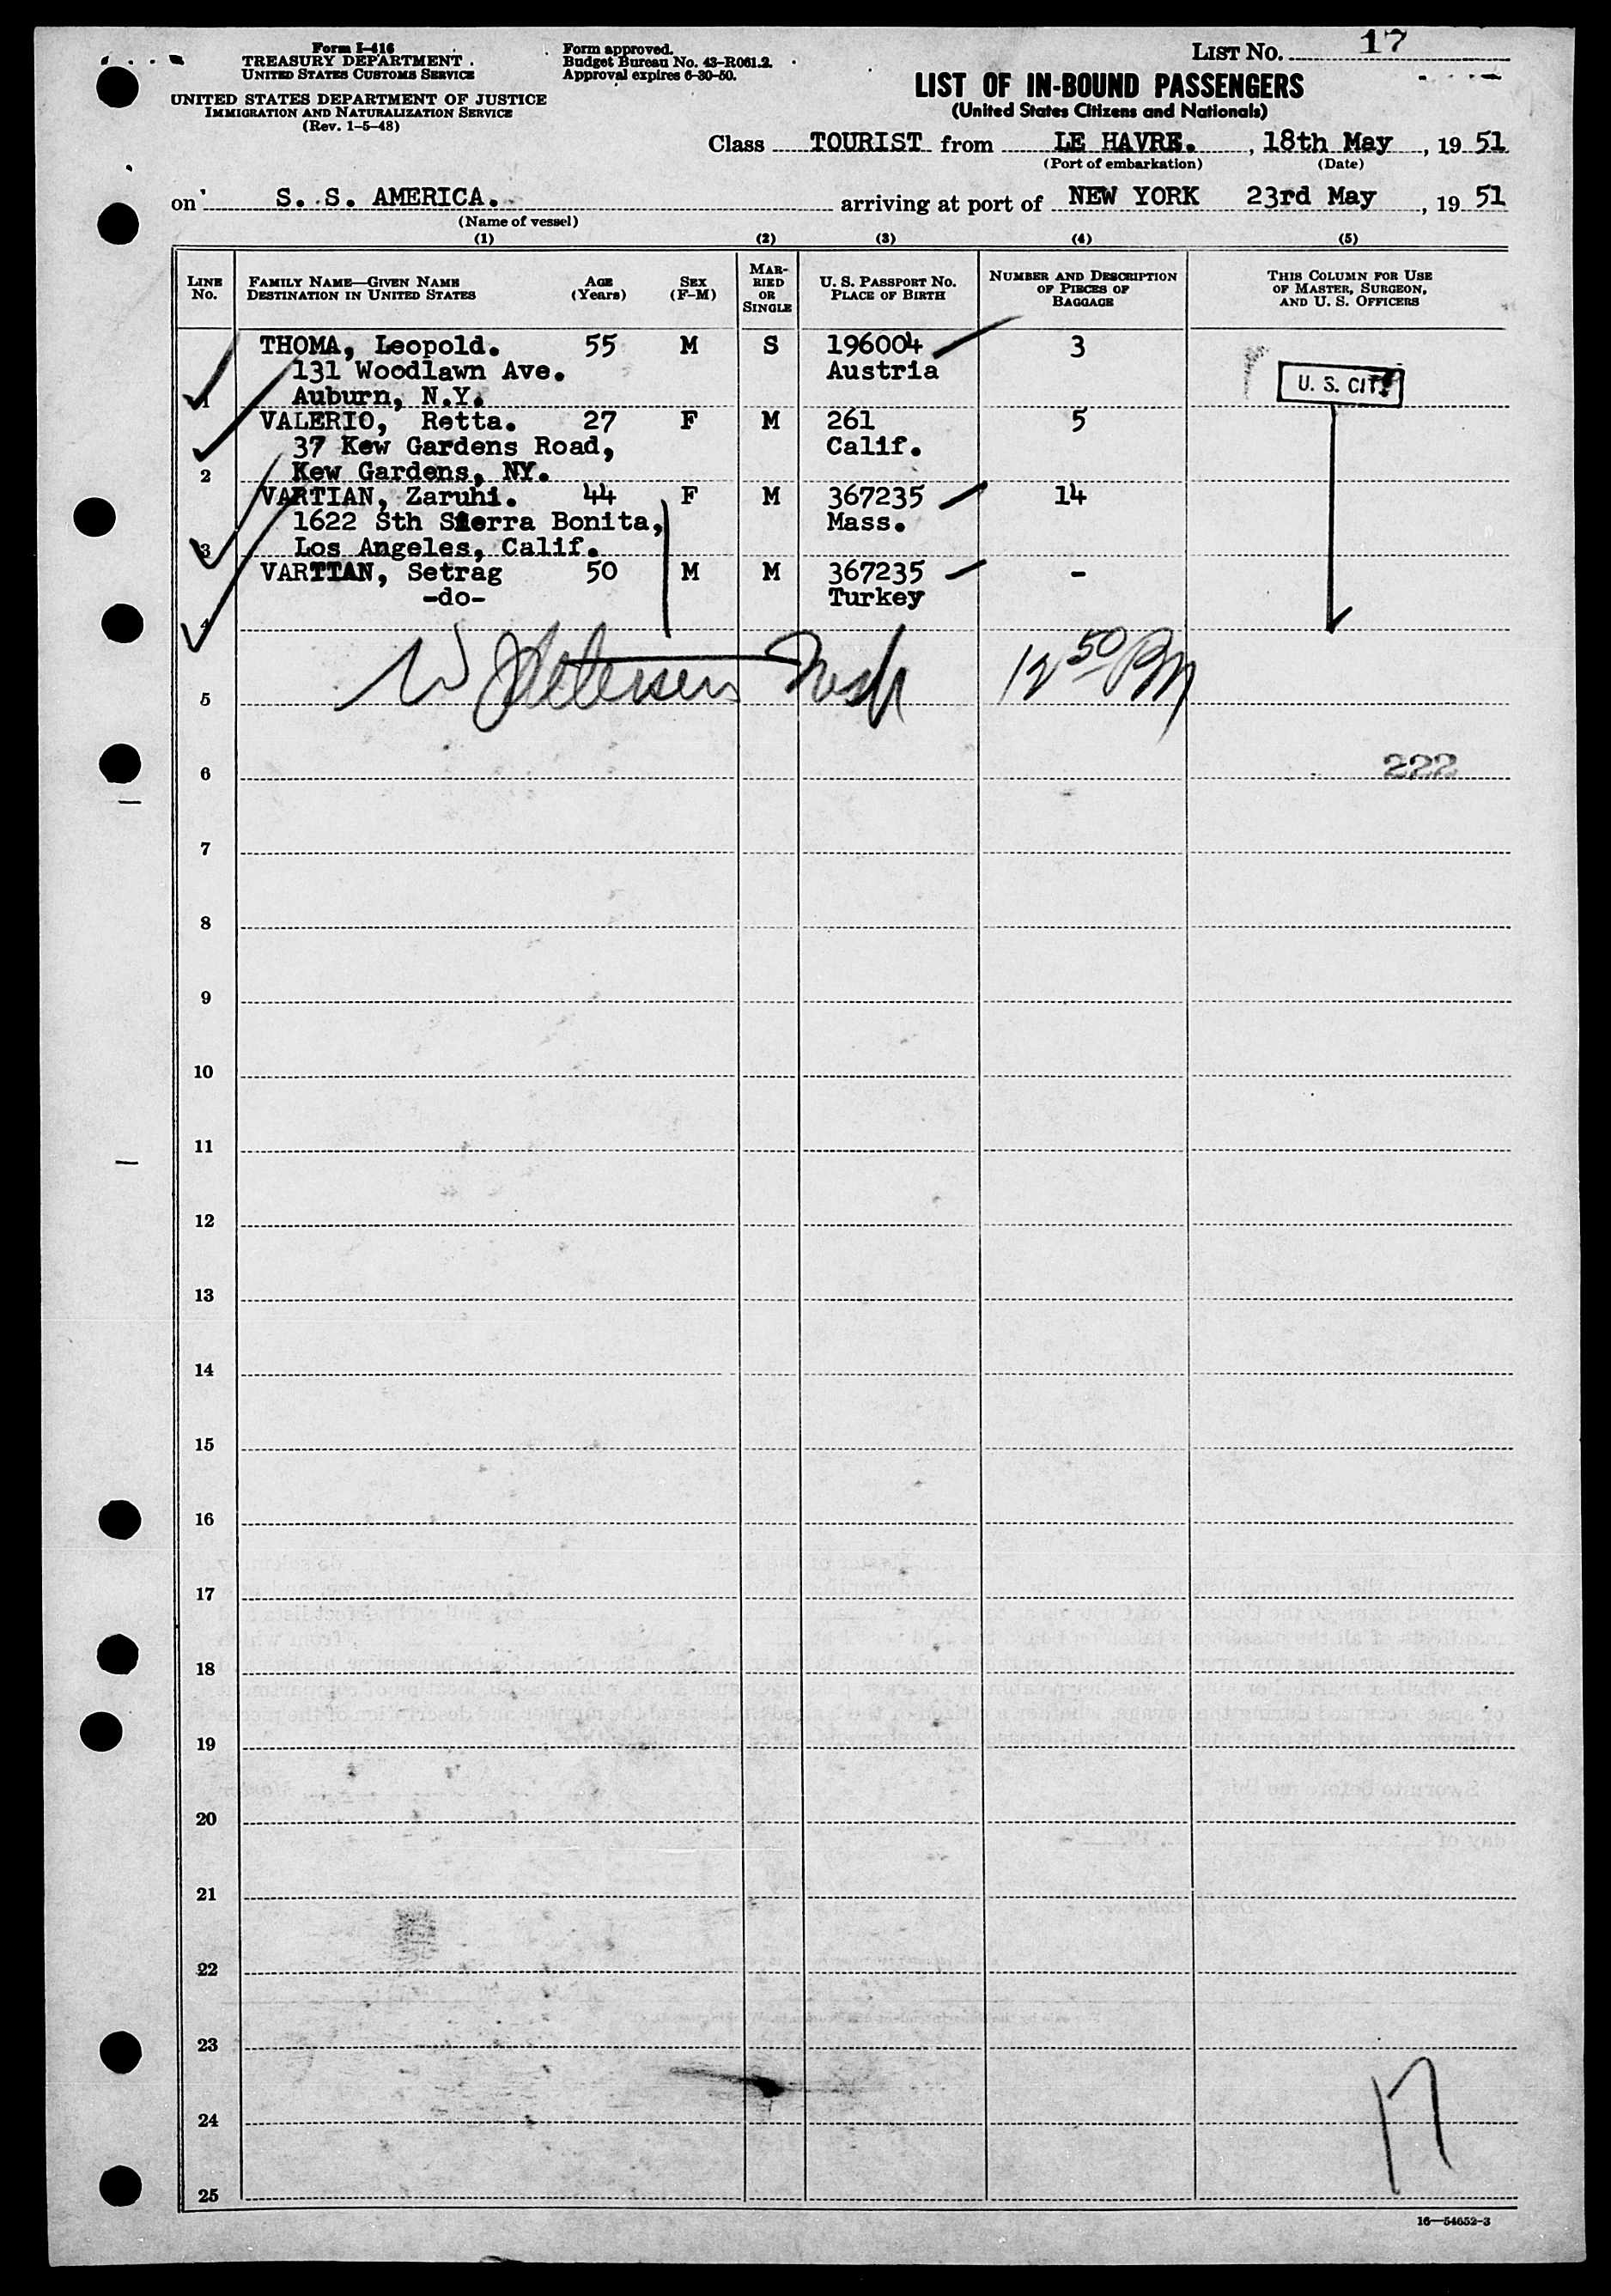 Form I-416
TREASURY DEPARTMENT
UNITED STATES CUSTOMS SERVICE
UNITED STATES DEPARTMENT OF JUSTICE
IMMIGRATION AND NATURALIZATION SERVICE
(Rev. 1-5-48)
Form approved.
Budget Bureau No. 43-R061.2.
Approval expires 6-30-50.
LIST NO. 17
LIST OF IN-BOUND PASSENGERS
(United States Citizens and Nationals)
Class TOURIST from LE HAVRE. , 18th May , 19 51
(Port of embarkation) (Date)
on S. S. AMERICA. arriving at port of NEW YORK 23rd May , 19 51
(Name of vessel)
(1) (2) (3) (4) (5)
LINE No.
FAMILY NAME—GIVEN NAME
DESTINATION IN UNITED STATES
AGE
(Years)
SEX
(F-M)
MAR-
RIED
OR
SINGLE
U. S. PASSPORT NO.
PLACE OF BIRTH
NUMBER AND DESCRIPTION
OF PIECES OF
BAGGAGE
THIS COLUMN FOR USE
OF MASTER, SURGEON,
AND U. S. OFFICERS
THOMA, Leopold. 55 M S 196004 3
131 Woodlawn Ave. Austria
1 Auburn, N.Y.
U. S. CIT.
VALERIO, Retta. 27 F M 261 5
37 Kew Gardens Road, Calif.
2 Kew Gardens, NY.
VARTIAN, Zaruhi. 44 F M 367235 14
1622 Sth Sierra Bonita, Mass.
3 Los Angeles, Calif.
VARTIAN, Setrag 50 M M 367235 -
-do- Turkey
4
12 50 PM
5
222
6
7
8
9
10
11
12
13
14
15
16
17
18
19
20
21
22
23
24
17
25
16—54652-3